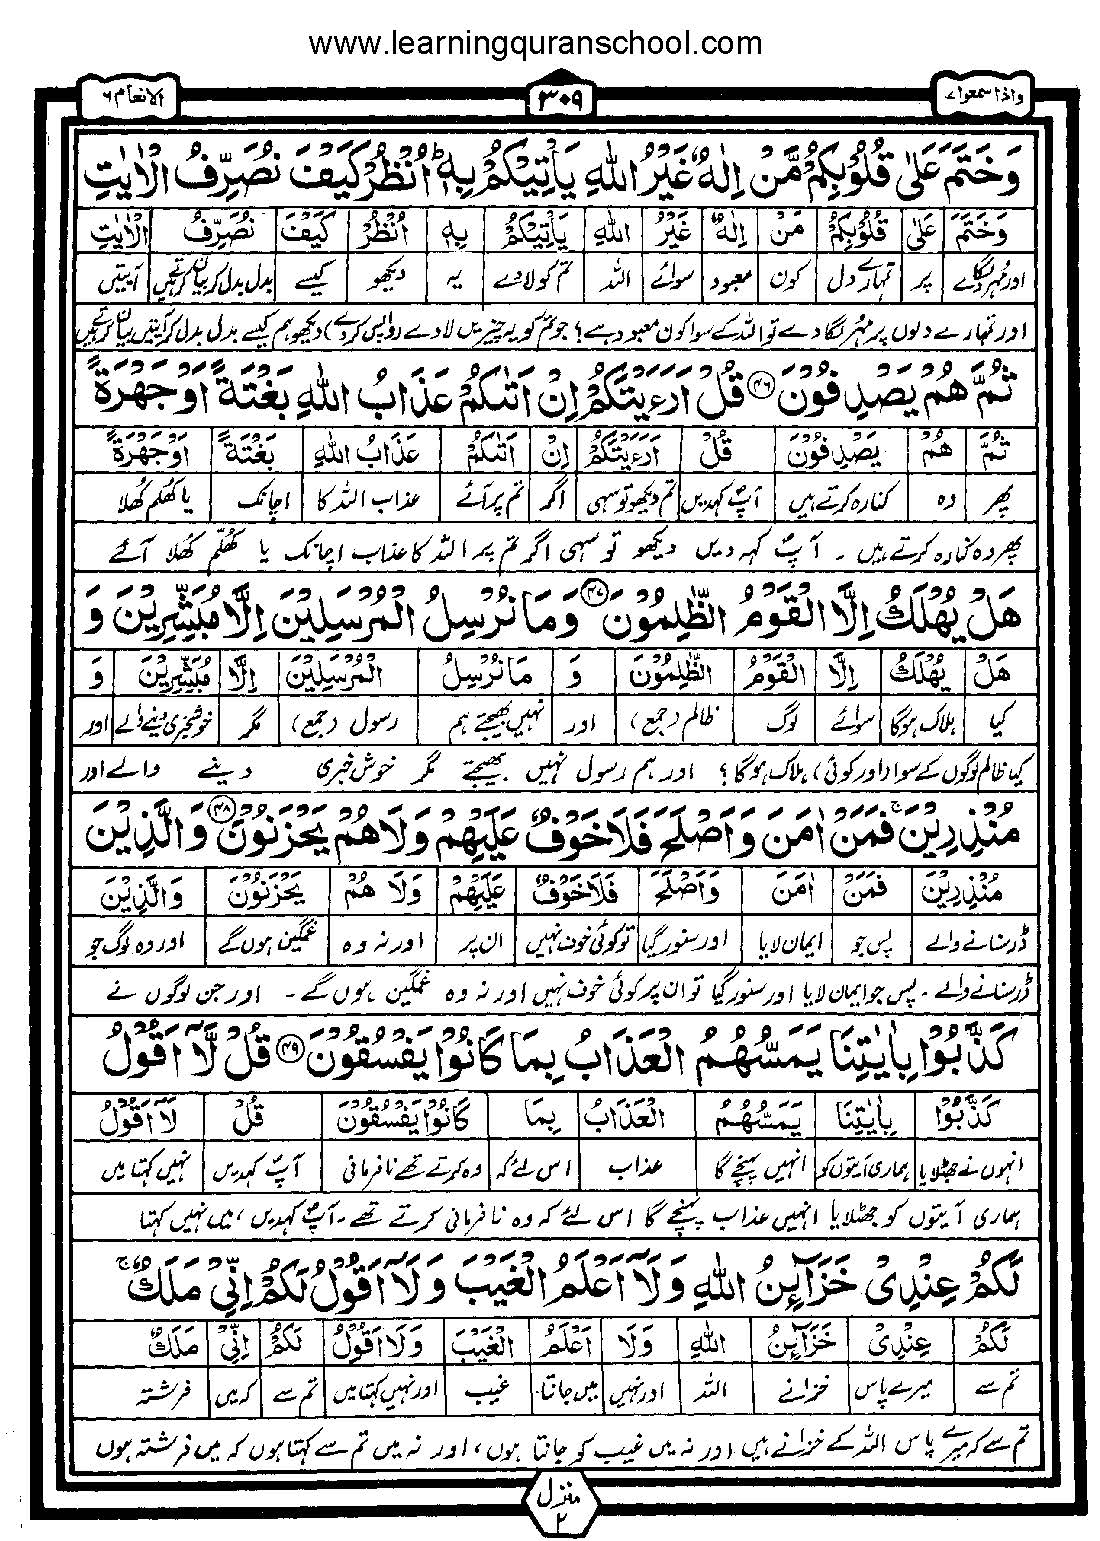 www.learningquranschool.com
واذا سمعوا ٧ ٣٠٩ الانعام ٦
وَخَتَمَ عَلٰى قُلُوْبِكُمْ مَّنْ اِلٰهٌ غَيْرُ اللّٰهِ يَاْتِيْكُمْ بِهٖ ؕ اُنْظُرْ كَيْفَ نُصَرِّفُ الْاٰيٰتِ
وَخَتَمَ عَلٰى قُلُوْبِكُمْ مَنْ اِلٰهٌ غَيْرُ اللّٰهِ يَاْتِيْكُمْ بِهٖ اُنْظُرْ كَيْفَ نُصَرِّفُ الْاٰيٰتِ
اور مُہر لگادے پر تمہارے دل کون معبود سوائے اللہ تم کو لادے یہ دیکھو کیسے بدل بدل کر بیان کرتے ہیں آیتیں
اور تمہارے دلوں پر مُہر لگا دے تو اللہ کے سوا کون معبود ہے؟ جو تم کو یہ چیزیں لا دے (واپس کر دے) دیکھو ہم کیسے بدل بدل کر آیتیں بیان کرتے ہیں
ثُمَّ هُمْ يَصْدِفُوْنَ ۴۶ قُلْ اَرَءَيْتَكُمْ اِنْ اَتٰىكُمْ عَذَابُ اللّٰهِ بَغْتَةً اَوْ جَهْرَةً
ثُمَّ هُمْ يَصْدِفُوْنَ قُلْ اَرَءَيْتَكُمْ اِنْ اَتٰىكُمْ عَذَابُ اللّٰهِ بَغْتَةً اَوْ جَهْرَةً
پھر وہ کنارہ کرتے ہیں آپؐ کہدیں تم دیکھو تو سہی اگر تم پر آئے عذاب اللہ کا اچانک یا کھُلم کھُلا
پھر وہ کنارہ کرتے ہیں ۔ آپؐ کہہ دیں دیکھو تو سہی اگر تم پر اللہ کا عذاب اچانک یا کھُلم کھُلا آئے
هَلْ يُهْلَكُ اِلَّا الْقَوْمُ الظّٰلِمُوْنَ ۴۷ وَمَا نُرْسِلُ الْمُرْسَلِيْنَ اِلَّا مُبَشِّرِيْنَ وَ
هَلْ يُهْلَكُ اِلَّا الْقَوْمُ الظّٰلِمُوْنَ وَ مَا نُرْسِلُ الْمُرْسَلِيْنَ اِلَّا مُبَشِّرِيْنَ وَ
کیا ہلاک ہوگا سوائے لوگ ظالم (جمع) اور نہیں بھیجتے ہم رسول (جمع) مگر خوشخبری دینے والے اور
کیا ظالم لوگوں کے سوا (اور کوئی) ہلاک ہوگا؟ اور ہم رسول نہیں بھیجتے مگر خوش خبری دینے والے اور
مُنْذِرِيْنَ ۚ فَمَنْ اٰمَنَ وَاَصْلَحَ فَلَا خَوْفٌ عَلَيْهِمْ وَلَا هُمْ يَحْزَنُوْنَ ۴۸ وَالَّذِيْنَ
مُنْذِرِيْنَ فَمَنْ اٰمَنَ وَاَصْلَحَ فَلَا خَوْفٌ عَلَيْهِمْ وَلَا هُمْ يَحْزَنُوْنَ وَالَّذِيْنَ
ڈر سنانے والے پس جو ایمان لایا اور سنور گیا تو کوئی خوف نہیں ان پر اور نہ وہ غمگین ہوں گے اور وہ لوگ جو
ڈر سنانے والے ۔ پس جو ایمان لایا اور سنور گیا تو ان پر کوئی خوف نہیں اور نہ وہ غمگین ہوں گے ۔ اور جن لوگوں نے
كَذَّبُوْا بِاٰيٰتِنَا يَمَسُّهُمُ الْعَذَابُ بِمَا كَانُوْا يَفْسُقُوْنَ ۴۹ قُلْ لَّاۤ اَقُوْلُ
كَذَّبُوْا بِاٰيٰتِنَا يَمَسُّهُمُ الْعَذَابُ بِمَا كَانُوْا يَفْسُقُوْنَ قُلْ لَاۤ اَقُوْلُ
انہوں نے جھٹلایا ہماری آیتوں کو انہیں پہنچے گا عذاب اس لئے کہ وہ کرتے تھے نافرمانی آپؐ کہدیں نہیں کہتا میں
ہماری آیتوں کو جھٹلایا انہیں عذاب پہنچے گا اس لئے کہ وہ نافرمانی کرتے تھے ۔ آپؐ کہدیں، میں نہیں کہتا
لَكُمْ عِنْدِيْ خَزَآئِنُ اللّٰهِ وَلَاۤ اَعْلَمُ الْغَيْبَ وَلَاۤ اَقُوْلُ لَكُمْ اِنِّيْ مَلَكٌ ۚ
لَكُمْ عِنْدِيْ خَزَآئِنُ اللّٰهِ وَلَا اَعْلَمُ الْغَيْبَ وَلَاۤ اَقُوْلُ لَكُمْ اِنِّيْ مَلَكٌ
تم سے میرے پاس خزانے اللہ اور نہیں میں جانتا غیب اور نہیں کہتا میں تم سے کہ میں فرشتہ
تم سے کہ میرے پاس اللہ کے خزانے ہیں اور نہ میں غیب کو جانتا ہوں، اور نہ میں تم سے کہتا ہوں کہ میں فرشتہ ہوں
منزل
۲